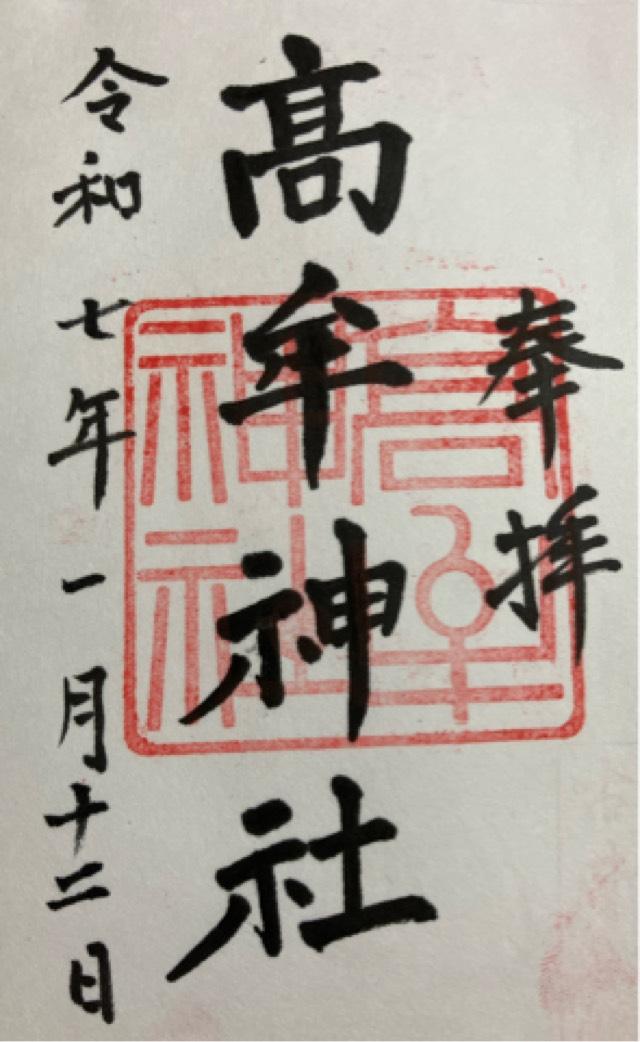 奉拝
髙牟神社
令和七年一月十二日
髙牟
神社